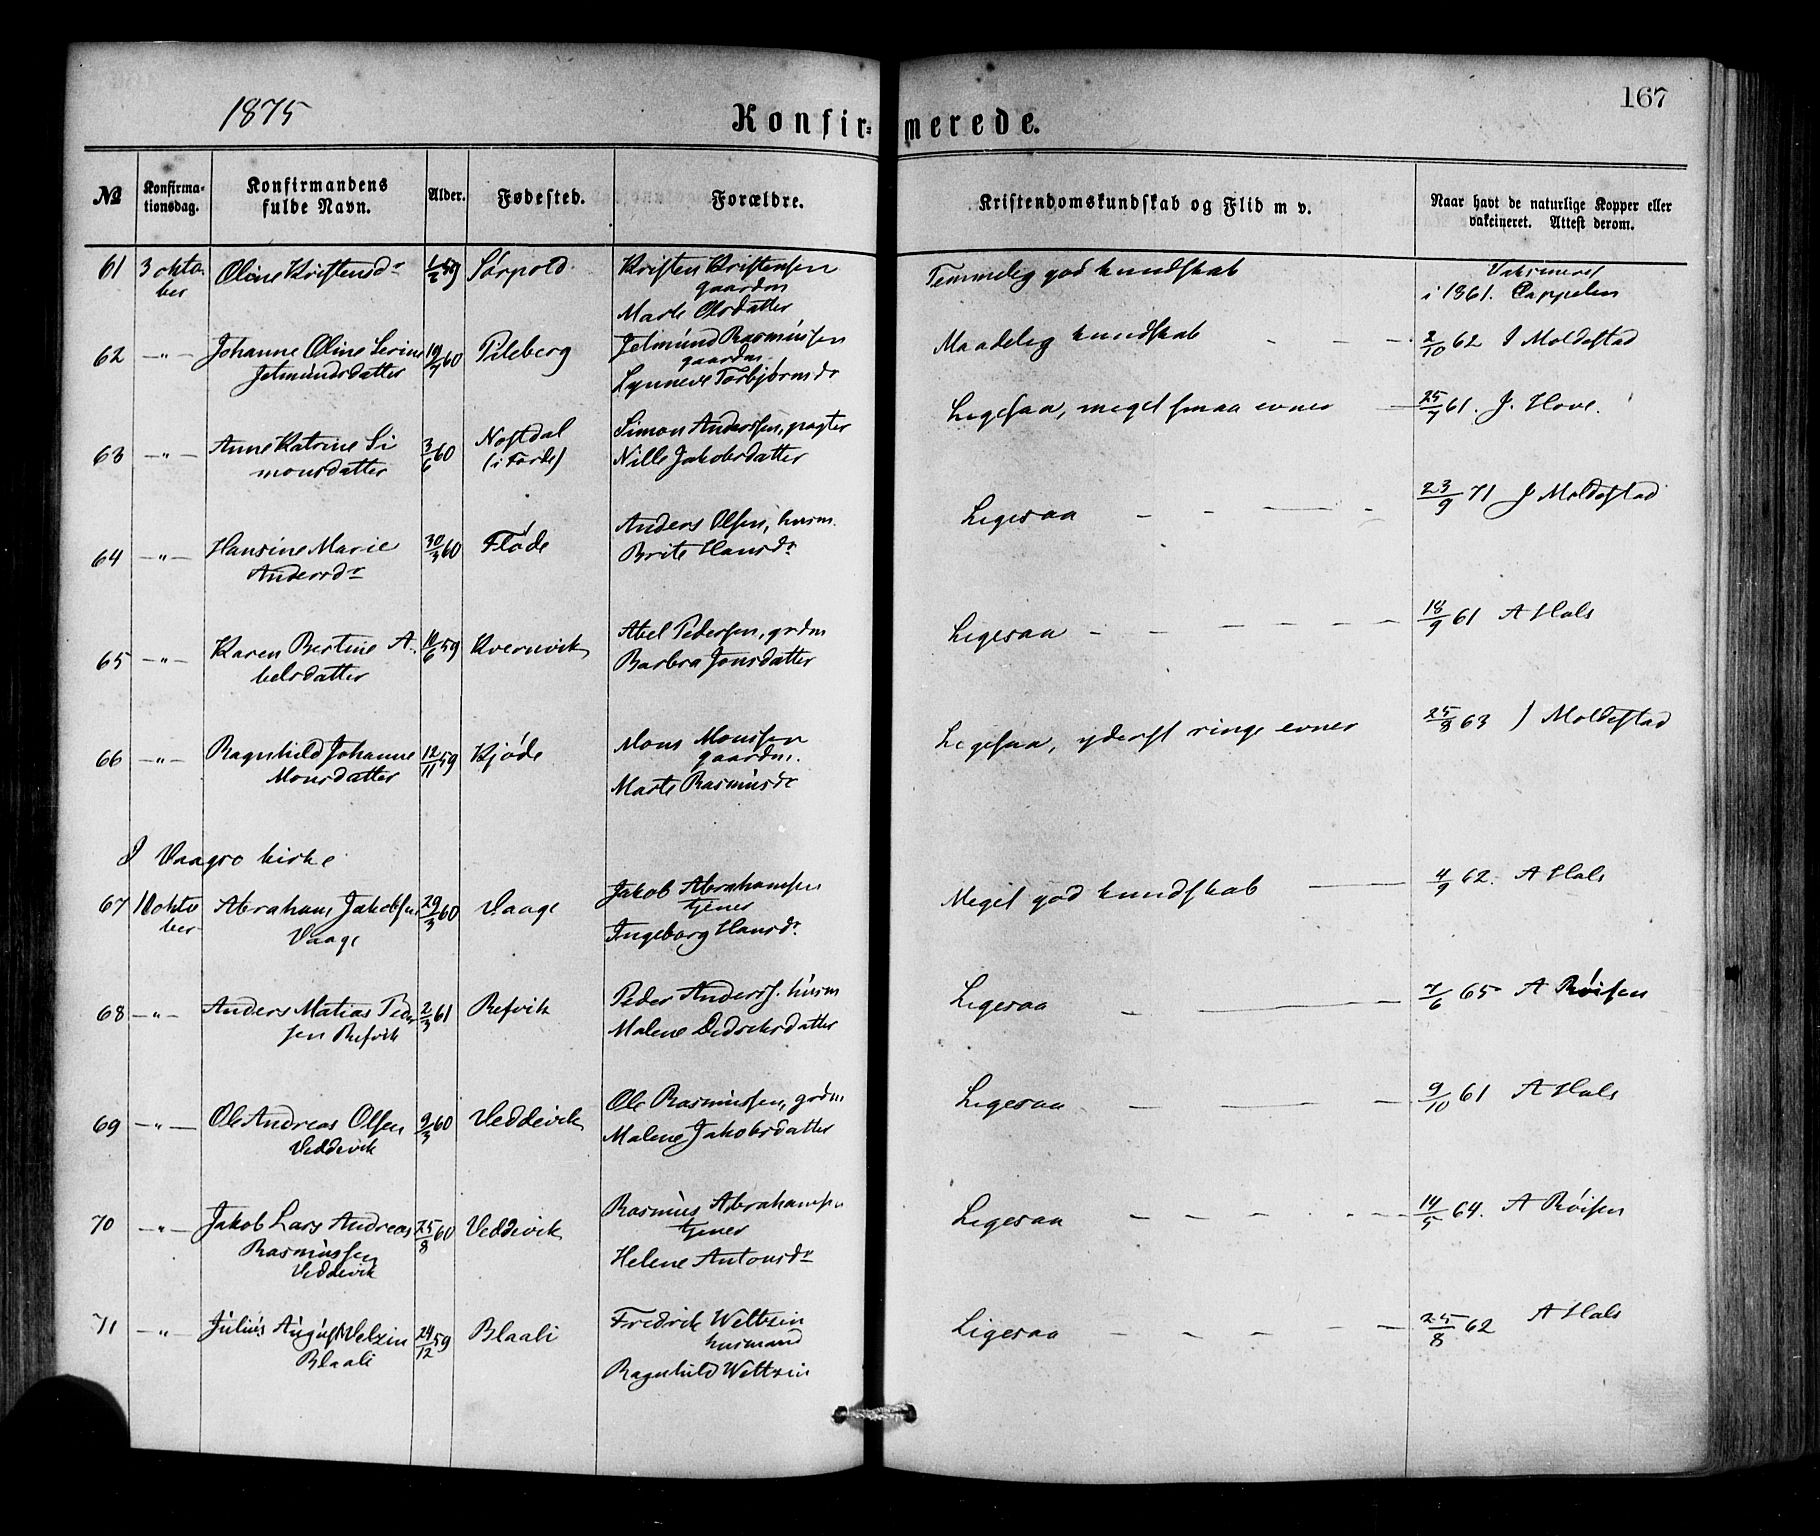 1875
167
Konfirmerede.
№ Konfirmationsdag. Konfirmandens fulde Navn. Alder. Fødested. Forældre. Kristendomskundskab og Flid m v. Naar havt de naturlige Kopper eller vakcineret. Attest derom.
61 3 oktober Oline Kristensdr 1/2 59 Sørpold Kristen Kristensen gaardm Marte Olsdatter Temmelig god kundskab Vaksineret i 1861. Cappelen
62 —"— Johanne Oline Serine Jetmundsdatter 19/7 60 Pileberg Jetmund Rasmussen gaardm. Lynneve Torbjørnsdr Maadelig kundskab 2/10 62 J Moldestad
63 —"— Anne Katrine Simonsdatter 3/6 60 Nostdal (i Førde) Simon Anderssen, pagter Nille Jakobsdatter Ligesaa, meget smaa evner 25/7 61. J. Hove.
64 —"— Hansine Marie Andersdr 30/3 60 Fløde Anders Olsen, husm. Brite Hansdr Ligesaa 23/9 71 J Moldestad
65 —"— Karen Bertine Abelsdatter 10/6 59 Kvernvik Abel Pederssen, grdm Barbra Jonsdatter Ligesaa 18/9 61 A Hals
66 —"— Ragnhild Johanne Monsdatter 12/11 59 Kjøde Mons Monssen gaardm. Marte Rasmusdr Ligesaa, yderst ringe evner 25/8 63 J Moldestad
I Vaagsø kirke
67 10 oktober Abraham Jakobsen Vaage 29/3 60 Vaage Jakob Abrahamsen tjener Ingeborg Hansdr. Meget god kundskab 4/9 62. A Hals
68 —"— Anders Matias Pedersen Refvik 2/3 61 Refvik Peder Anderss. husm Malene Didriksdatter Ligesaa 7/6 65 A Røisen
69 —"— Ole Andreas Olsen Veddevik 9/3 60 Veddevik Ole Rasmussen, grdm Malene Jakobsdatter Ligesaa 9/10 61 A Hals
70 —"— Jakob Lars Andreas Rasmussen Veddevik 25/8 60 Veddevik Rasmus Abrahamsen tjener Helene Antonsdr Ligesaa 14/5 64. A Røisen
71 —"— Julius August Velzin Blaali 24/12 59 Blaali Fredrik Weltzin husmand Ragnhild Weltzin Ligesaa 25/8 62 A Hals